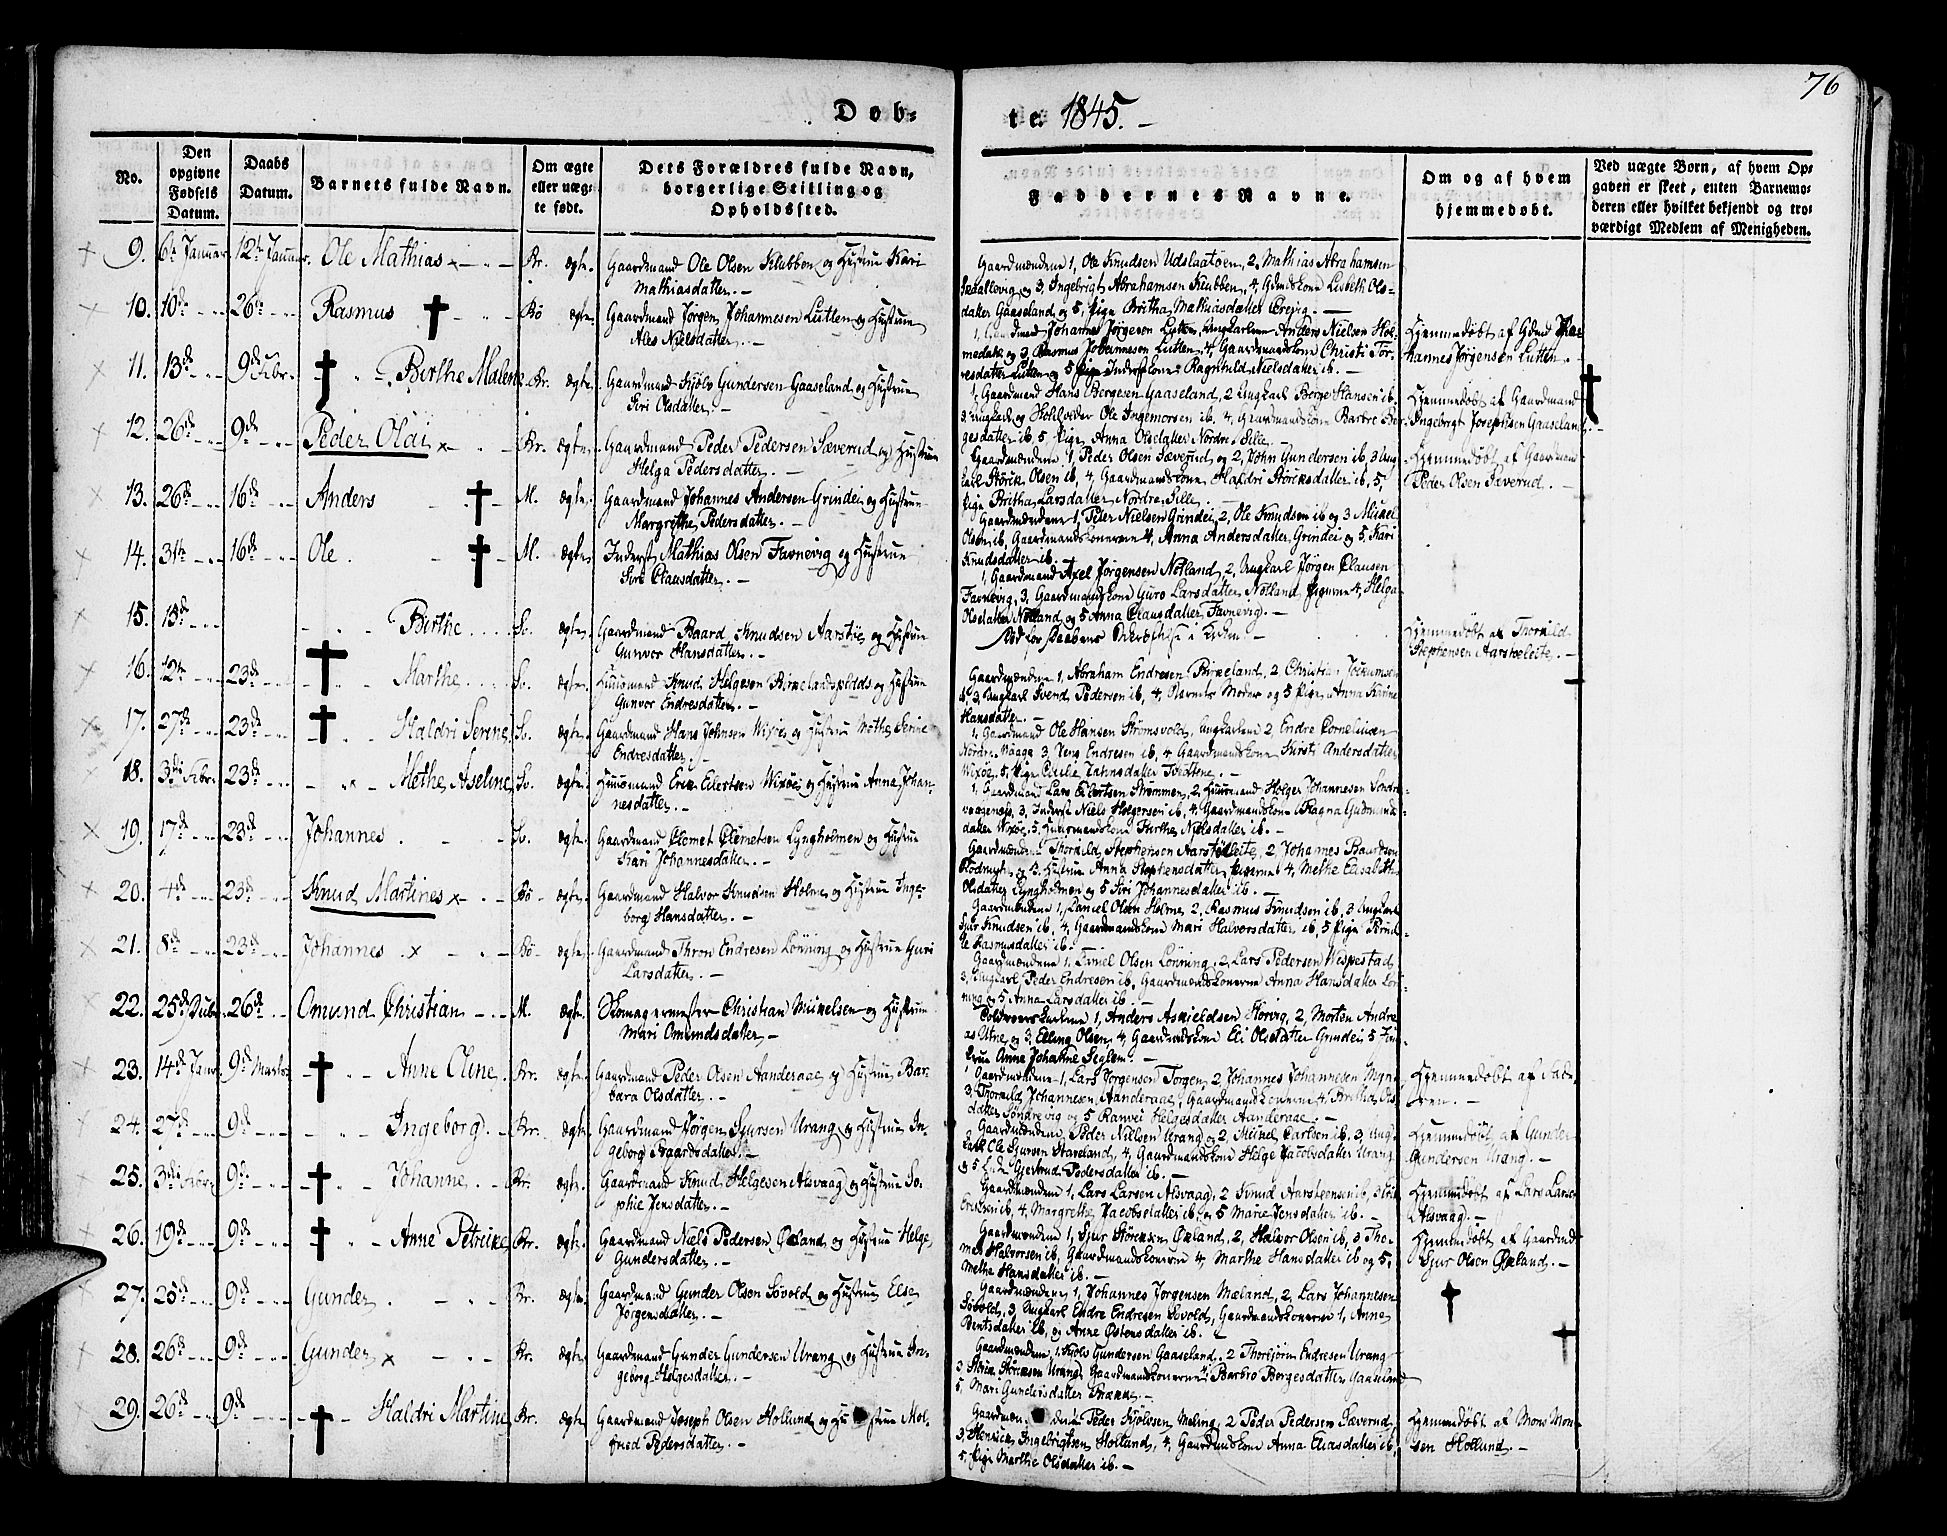 76
Døb-
te 1845. -
No.
Den
opgivne
Fødsels
Datum.
Daabs
Datum.
Barnets fulde Navn.
Om ægte
eller uæg-
te født.
Dets Forældres fulde Navn,
borgerlige Stilling og
Opholdssted.
Faddernes Navne.
Om og af hvem
hjemmedøbt.
Ved uægte Børn, af hvem Op-
gaven er skeet, enten Barnemo-
deren eller hvilket bekjendt og tro-
værdigt Medlem af Menigheden.
9. 6te Januar 12te Januar. Ole Mathias Kr. ægte. Gaardmand Ole Olsen Klubben og Hustrue Kari
Mathiasdatter. -
Gaardmændene 1, Ole Knudsen Udslaatøen, 2, Mathias Abrahamsen
og 3, Ingebrigt Abrahamsen Klubben, 4, Lisbeth Ols-
datter Gaaseland, og 5, Pige Britha Mathiasdatter
10. 10de 26de Rasmus Bø ægte. Gaardmand Jørgen Johannesen Lutten og Hustrue
Ales Nielsdatter. -
1, Gaardmand Johannes Jørgensen Lutten, Ungkarlene Anders Nielsen Hol-
og 3 Rasmus Johannesen Lutten, 4, Gaardmandskone Christi Tor-
resdatter Lutten og 5 Ragnhild Nielsdatter ib. -
Hjemmedøbt af Gdmd Jho-
hannes Jørgensen Lutten. -
11. 13de 9de Febr. Berthe Malene Kr. ægte. Gaardmand Kjølv Gundersen Gaaseland og Hustrue
Siri Olsdatter. -
1, Gaardmand Hans Bergesen Gaaseland, 2 Ungkarl Berge Hansen ib.
3 Ungkarl og Ole Ingemorsen ib. 4, Gaardmandskone Barbre Ber-
gesdatter ib, 5, Pige Anna Olsdatter Nordre Sille. -
Hjemmedøbt af Gaardmand
Ingebrigt Josephsen Gaaseland. -
12. 26de 9de Peder Oldi Kr. ægte. Gaardmand Peder Pedersen Sæverud og Hustrue
Helga Pedersdatter. -
Gaardmændene 1, Peder Olsen Sæverud og 2, John Gundersen ib, 3 Ung-
karl Størk Olsen ib, 4, Gaardmandskone Haldri Størksdatter ib, 5,
Pige Britha Larsdatter Nordre Sille. -
Hjemmedøbt af Gaardmand
Peder Olsen Sæverud. -
13. 26de 16de Anders M. ægte. Gaardmand Johannes Andersen Grindei og Hustrue
Margrethe Pedersdatter. -
Gaardmændene 1, Peter Nielsen Grindei, 2, Ole Knudsen ib og 3 Mikel
Olsen ib, Gaardmandskonerne 4, Anna Andersdatter Grindei og 5, Kari
Knudsdatter ib. -
14. 31te 16de Ole. M. ægte. Inderst Mathias Olsen Favnevig og Hustrue
Siri Clausdatter. -
1, Gaardmand Axel Jørgensen Nøtland, 2, Ungkarl Jørgen Clausen
Favnevig, 3, Gaardmandskone Guro Larsdatter Nøtland, Pigerne 4, Helga
Olsdatter Nøtland og 5 Anna Clausdatter Favnevig. -
15. 18de Berthe So. ægte. Gaardmand Baard Knudsen Aarstøe og Hustrue
Gunvor Hansdatter. -
Død før Daabens i Kirken. -
Hjemmedøbt af Thorkild
Stephensen Aarstøeleite. -
16. 12te 23de Marthe So. ægte. Huusmand Knud Helgesen Birkelandspladds og Hustrue
Gunvor Endresdatter. -
Gaardmændene 1, Abraham Endresen Birkeland, 2 Christian
ib, 3, Ungkarl Sverd Pedersen ib, 4, Barnets Moder og 5 Pige Anna Karine
Hansdatter. -
17. 27de 23de Haldri Serine So. ægte. Gaardmand Hans Johnsen Wixøe og Hustrue Methe Serine
Endresdatter. -
1, Gaardmand Ole Hansen Strømsvold, Ungkarlene 2, Endre Corneliusen
3, Jens Endresen ib, 4 Gaardmandskone Kirsti Andersdatter
Wixøe, 5, Pige Cecilie
18. 3die Febr. 23de Methe Aseline So. ægte. Huusmand Erik Eilertsen Wixøe og Hustrue Anna Johan-
nesdatter. -
1, Gaardmand Lars Eilertsen Strømmen, 2, Huusmand Holger Johannesen Søndre
vaagenes, 3, Inderst Niels Holgersen ib, 4, Gaardmandskone Ragna Gudmunds
datter Wixøe, 5, Huusmandskone Berthe Nielsdatter ib. -
19. 17de 23de Johannes So. ægte. Gaardmand Clemet Clemetsen Lyngholmen og Hustrue
Kari Johannesdatter. -
Gaardmændene 1 Thorkild Stephensen Aarstøeleite, 2, Johannes Baardsen
og 3, Hustrue Anna Stephensdatter, Pigerne 4, Methe Elisabeth
Olsdatter Lyngholmen og 5 Siri Johannesdatter ib. -
20. 4de 23de Knud Martines Bø ægte. Gaardmand Halvor Knudsen Holme og Hustrue Inge-
borg Hansdatter. -
Gaardmændene 1, Daniel Olsen Holme, 2, Rasmus Knudsen ib, 3 Ungkarl
Sjur Knudsen ib, 4, Gaardmandskone Mari Halvorsdatter ib, 5 Pige
Rasmusdatter ib. -
21. 8de 23de Johannes Bø ægte. Gaardmand Thron Endresen Lønning og Hustrue Guri
Larsdatter. -
Gaardmændene 1, Daniel Olsen Lønning, 2, Lars Pedersen Wespestad,
3, Ungkarl Peder Endresen ib, Gaardmandskonerne Anna Hansdatter Løn-
ning og 5 Anna Larsdatter ib. -
22. 25de 26de Omund Christian M. ægte. Skomagermester Christian Mikelsen og Hustrue
Mari Omundsdatter -
1, Anders Askieldsen Storvig, 2, Morten Andre
as Utne og 3, Elling Olsen, 4, Gaardmandskone Eli Olsdatter Grindei 5
Anne Johanne Seglem. -
23. 14de Janr. 9de Marts Anne Oline Kr. ægte. Gaardmand Peder Olsen Aanderaae og Hustrue Bar-
bara Olsdatter. -
Gaardmændene 1, Lars Jørgensen Torgen, 2, Johannes Johannesen
3, Thorkild Johannesen Aanderaae, Gaardmandskonerne 4, Britha Ols
datter Søndrevig og 5 Ranvei Helgesdatter Aanderaae. -
Hjemmedøbt af Fade-
ren. -
24. 27de 9de Ingeborg Kr. ægte. Gaardmand Jørgen Sjursen Urang og Hustrue In-
geborg Baardsdatter. -
Gaardmændene, Peder Nielsen Urang og 2, Mikel Carlsen ib, 3 Ung-
karl Ole Sjursen Staveland, 4, Gaardmandskone Helge Jacobsdatter Urang
og 5 Gjertrud Pedersdatter ib. -
Hjemmedøbt af Gunder
Gundersen Urang. -
25. 3die Febr. 9de Johanne Kr. ægte. Gaardmand Knud Helgesen Alsvaag og Hustrue So-
phie Jensdatter. -
Gaardmændene 1, Lars Larsen Alsvaag, 2 Knud Aarsteensen ib, 3 Erik
Eriksen ib, 4, Margrethe Jacobsdatter ib, og 5 Marie Jensdatter ib. -
Hjemmedøbt af Lars Larsen
Alsvaag. -
26. 19de 9de Anne Petrikke Kr. ægte. Gaardmand Niels Pedersen Økland og Hustrue Helge
Gundersdatter. -
Gaardmændene 1, Sjur Størksen Økland, 2, Halvor Olsen ib, 3 Tho-
mas Halvorsen ib, Gaardmandskonerne 4, Marthe Hansdatter ib og 5,
Methe Hansdatter ib. -
Hjemmedøbt af Gaardmd
Sjur Olsen Økland. -
27. 25de 9de Gunder Kr. ægte. Gaardmand Gunder Olsen Søvold og Hustrue Else
Jørgensdatter. -
Gaardmændene 1, Johannes Jørgensen Mæland, 2, Lars Johannesen
Søvold, 3, Ungkarl Endre Endresen Søvold, Gaardmandskonerne 1, Anne
Bentsdatter ib, og Anne Østensdatter ib.
28. 26de 9de Gunder Kr. ægte. Gaardmand Gunder Gundersen Urang og Hustrue In-
geborg Helgesdatter. -
Gaardmændene, 1, Kjølv Gundersen Gaaseland, 2 Thorbjørn Endresen Urang
3, Størk Størksen Urang, Gaardmandskonerne Barbro Bergesdatter Gaaseland
5, Mari Gundersdatter
29. 26de 9de Haldri Martine Kr. ægte. Gaardmand Joseph Olsen Hollund og Hustrue Mol-
fried Pedersdatter. -
Gaardmændene Peder Kjølvsen Meling, 2 Peder Pedersen Sæverud,
3, Henrick Ingebrigtsen Hollund, 4, Gaardmdskone Anna Eliasdatter ib,
5, Pige Marthe Olsdatter ib. -
Hjemmedøbt af Mons Mon-
sen Hollund. -